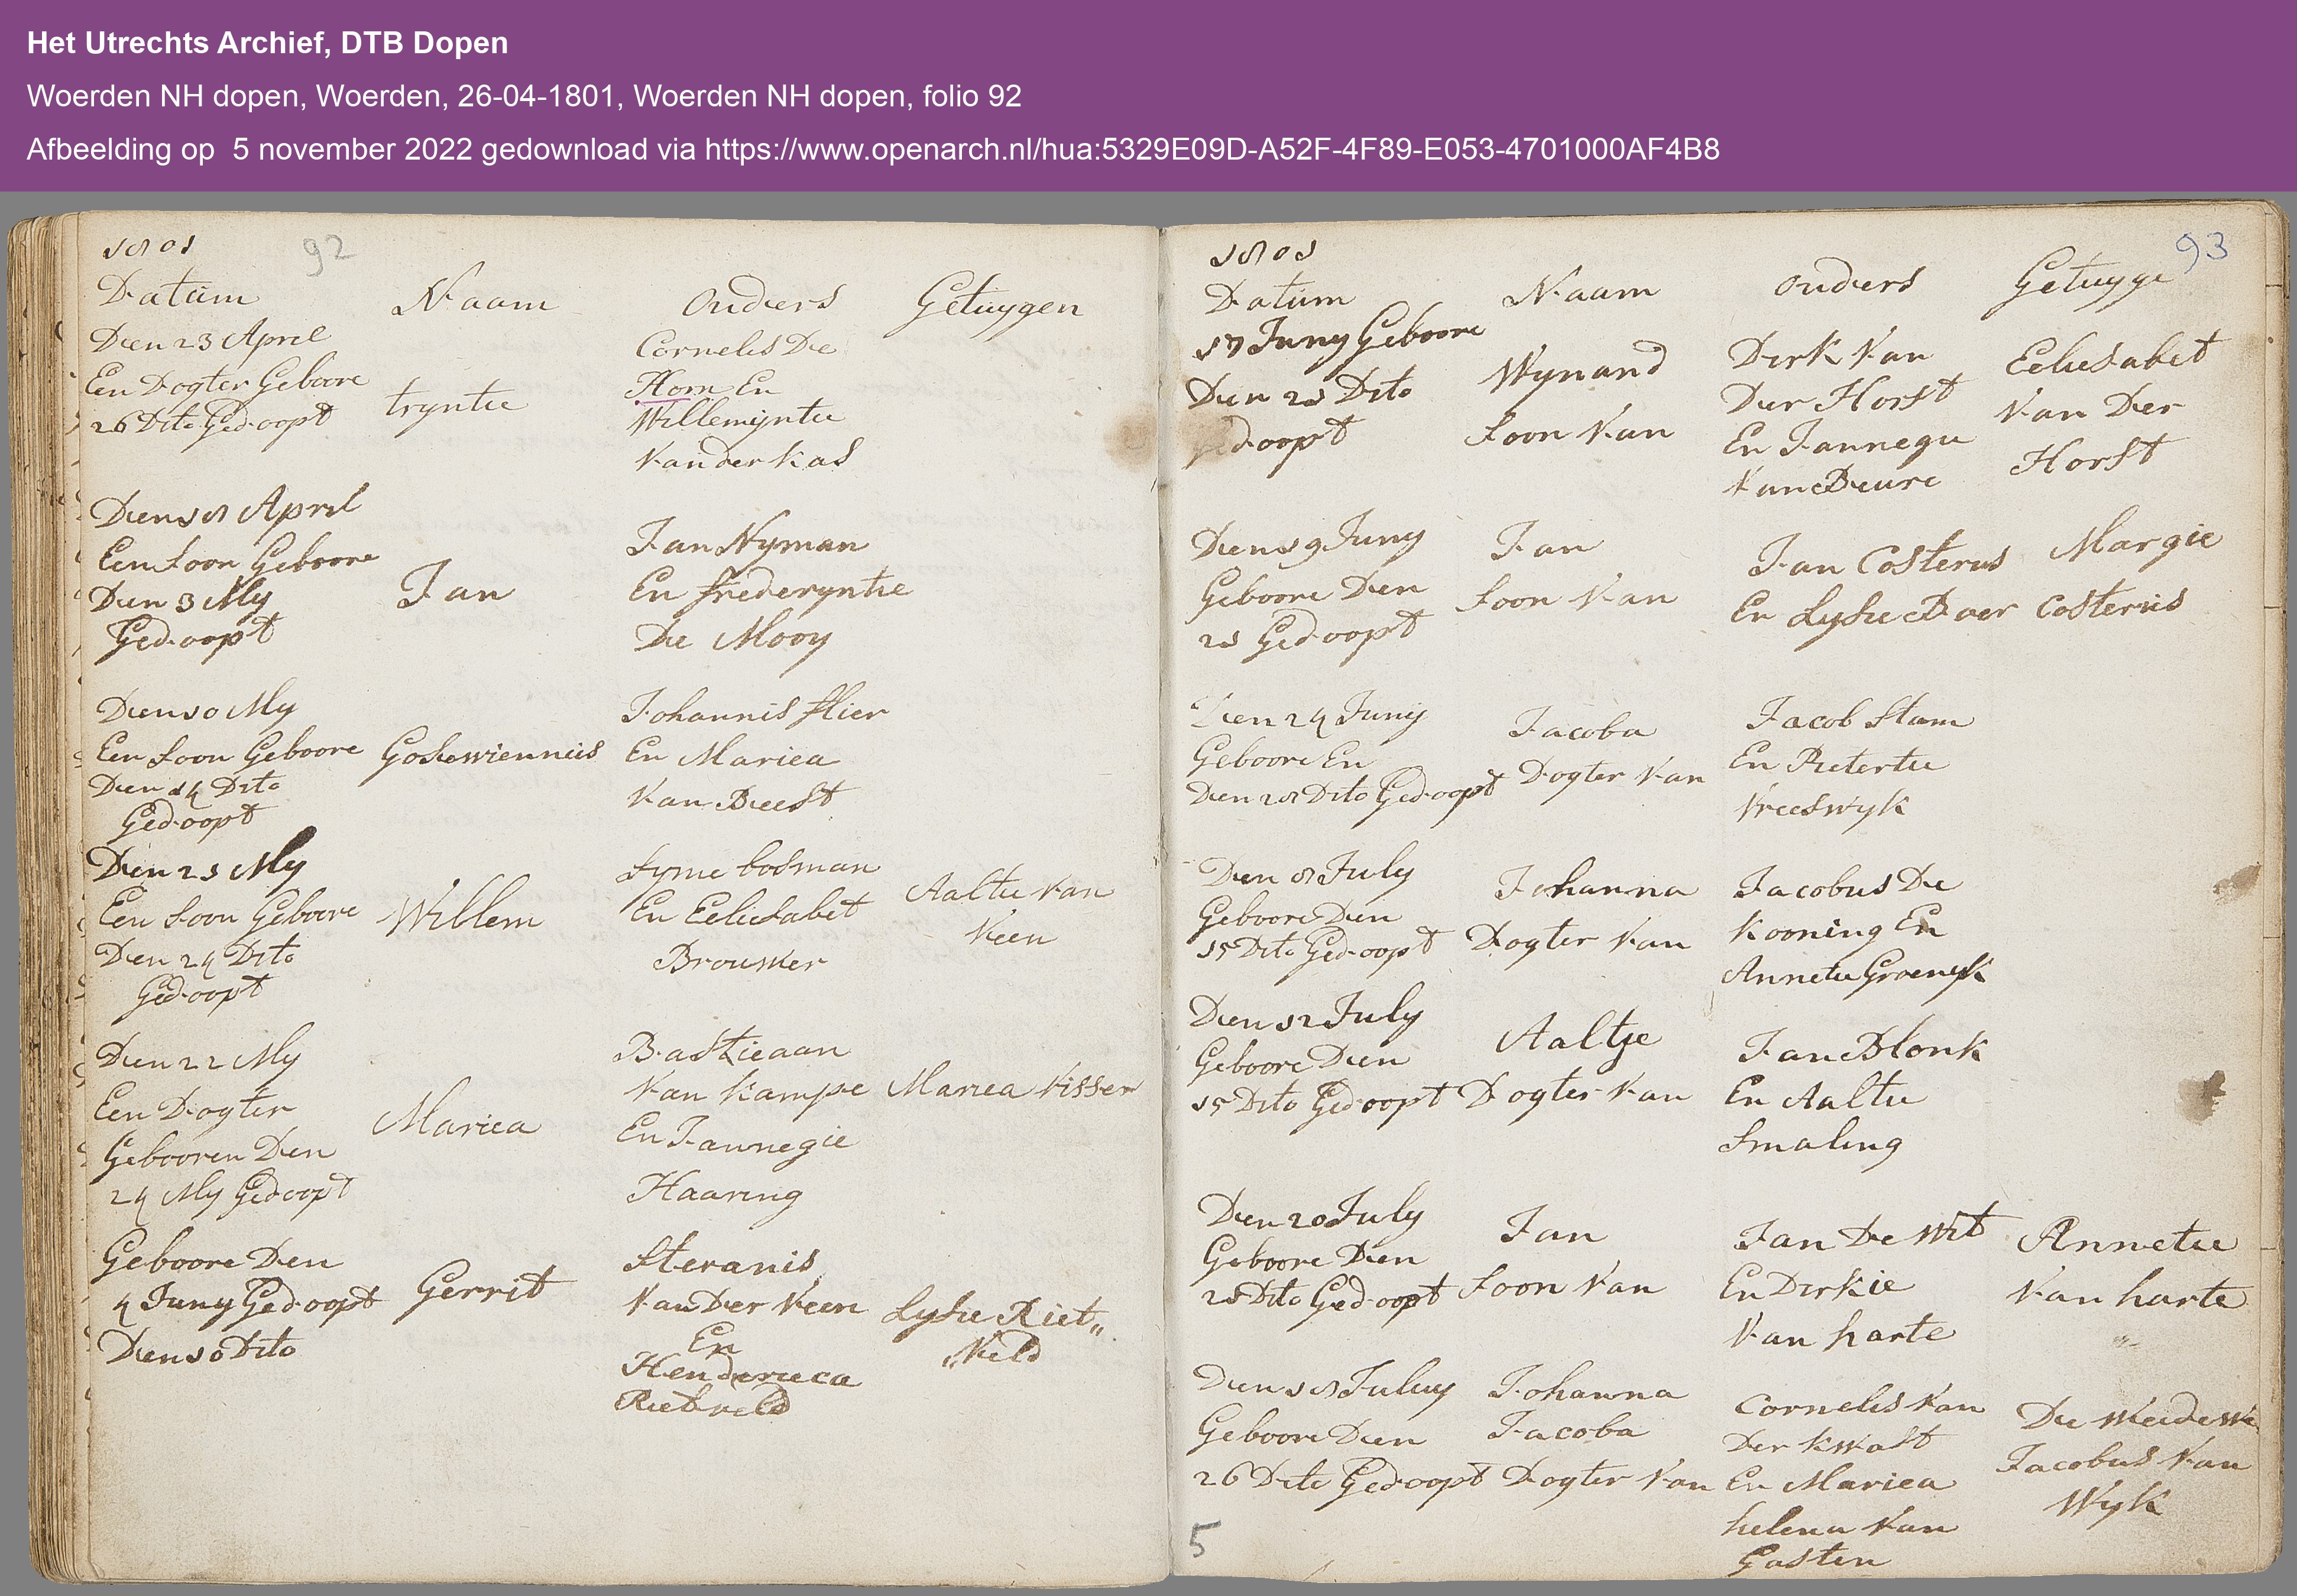 Het Utrechts Archief, DTB Dopen
Woerden NH dopen, Woerden, 26-04-1801, Woerden NH dopen, folio 92
Afbeelding op 5 november 2022 gedownload via https://www.openarch.nl/hua:5329E09D-A52F-4F89-E053-4701000AF4B8
1801 92
Datum Naam Ouders Getuygen
Dien 23 April
Een Dogter Geboore
26 Dito Gedoopt
tryntie
Cornelis De
Horn En
Willemijntie
Van der Kas
Dien 18 April
Een Soon Geboore
Dien 3 My
Gedoopt
Jan
Jan Nyman
En frederyntie
De Mooy
Dien 10 My
Een Soon Geboore
Dien 14 Dito
Gedoopt
Gosiewiennus
Johannis Slier
En Mariea
Van Beest
Dien 21 My
Een Soon Geboore
Dien 24 Dito
Gedoopt
Willem
Syme bosman
En Eeliesabet
Brouwer
Aaltie Van
Veen
Dien 22 My
Een Dogter
Gebooren Dien
24 My Gedoopt
Mariea
Bastieaan
Van Kampe
En Jannegie
Haaring
Mariea Visser
Geboore Dien
4 Juny Gedoopt
Dien 10 Dito
Gerrit
Steranis
Van Der Veen
En
Henderieca
Rietveld
Lysie Riet„
„Veld
1801 93
Datum Naam Ouders Getuyge
17 Juny Geboore
Dien 21 Dito
Gedoopt
Wynand
Soon Van
Dirk Van
Der Horst
En Jannegie
Van Beure
Eeliesabet
Van Der
Horst
Dien 19 Juny
Geboore Dien
21 Gedoopt
Jan
Soon Van
Jan Costerus
En Lysie Boer
Margie
Costerus
Dien 24 Juny
Geboore En
Dien 28 Dito Gedoopt
Jacoba
Dogter Van
Jacob Stam
En Pietertie
Vreeswyk
Dien 8 July
Geboore Dien
15 Dito Gedoopt
Johanna
Dogter Van
Jacobus De
Kooning En
Annetie
Dien 12 July
Geboore Dien
15 Dito Gedoopt
Aaltje
Dogter Van
Jan Blonk
En Aaltie
Smaling
Dien 20 July
Geboore Dien
21 Dito Gedoopt
Jan
Soon Van
Jan De Wit
En Dirkie
Van harte
Annetie
Van harte
Dien 18 Juluy
Geboore Dien
26 Dito Gedoopt
Johanna
Jacoba
Dogter Van
Cornelis Van
Der Kwast
En Mariea
helena Van
Gasten
Die Weidewe
Jacobus Van
Wyk
5